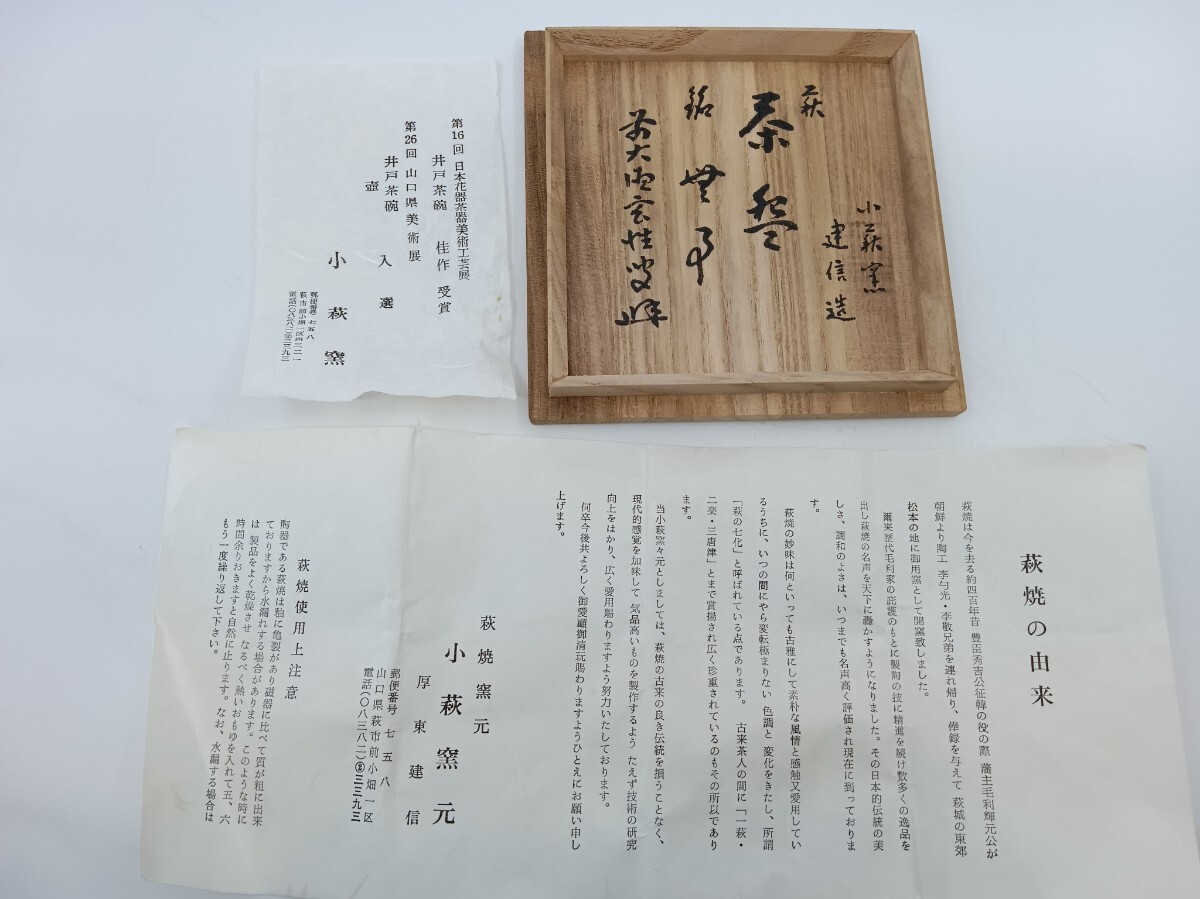 小萩窯
建信造
萩
茶盌
銘 無事
第16回 日本花器茶器美術工芸展
井戸茶碗 佳作 受賞
第26回 山口県美術展
井戸茶碗
壺
入選
小萩窯
郵便番号 七五八
萩市前小畑一区四二二一
電話(〇八三八二)②三三九三
萩焼の由来
萩焼は今を去る約四百年昔 豊臣秀吉公征韓の役の際 藩主毛利輝元公が
朝鮮より陶工 李勺光・李敬兄弟を連れ帰り、俸録を与えて 萩城の東郊
松本の地に御用窯として開窯致しました。
爾来歴代毛利家の庇護のもとに製陶の技に精進を続け数多くの逸品を
出し萩焼の名声を天下に轟かすようになりました。その日本的伝統の美
しさ、調和のよさは、いつまでも名声高く評価され現在に到っておりま
す。
萩焼の妙味は何といっても古雅にして素朴な風情と感触又愛用してい
るうちに、いつの間にやら変転極まりない 色調と 変化をきたし、所謂
「萩の七化」と呼ばれている点であります。 古来茶人の間に「一萩・
二楽・三唐津」とまで賞揚され広く珍重されているのもその所以であり
ます。
当小萩窯々元としましては、萩焼の古来の良き伝統を損うことなく、
現代的感覚を加味して 気品高いものを製作するよう たえず技術の研究
向上をはかり、広く愛用賜わりますよう努力いたしております。
何卒今後共よろしく御愛顧御清玩賜わりますようひとえにお願い申し
上げます。
萩焼窯元
小萩窯元
厚東建信
郵便番号 七五八
山口県萩市前小畑一区
電話(〇八三八二)②三三九三
萩焼使用上注意
陶器である萩焼は釉に亀裂があり磁器に比べて質が粗に出来
ておりますから水漏れする場合があります。このような時に
は 製品をよく乾燥させ なるべく熱いおもゆを入れて五、六
時間余りおきますと自然に止ります。なお、水漏する場合は
もう一度繰り返して下さい。